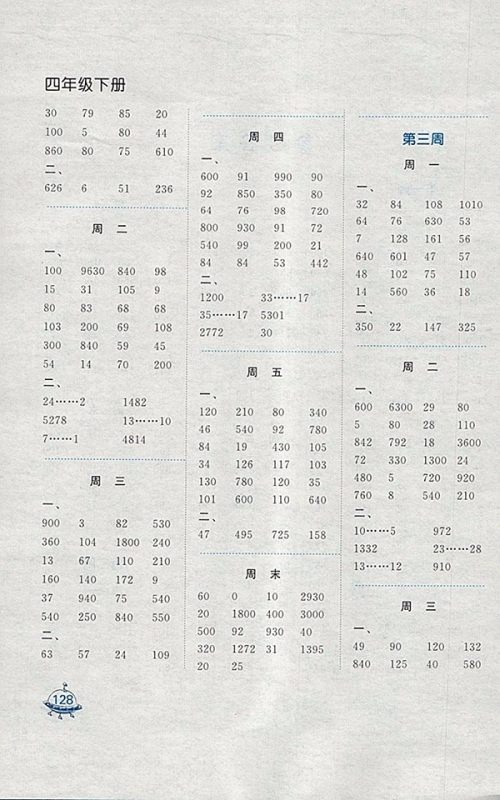 四年级下册
30 79 85 20
100 5 80 44
860 80 75 610
二、
626 6 51 236
周 二
一、
100 9630 840 98
15 31 105 9
80 83 68 68
103 200 69 108
300 840 59 45
54 14 70 200
二、
24……2 1482
5278 13……10
7……1 4814
周 三
一、
900 3 82 530
360 104 1800 240
13 67 110 210
160 140 172 9
37 940 75 540
540 250 840 550
二、
63 57 24 109
周 四
一、
600 91 990 90
92 850 350 80
64 76 98 720
800 930 91 72
540 99 200 21
84 84 53 442
二、
1200 33……17
35……17 5301
2772 30
周 五
一、
120 210 80 340
46 540 92 780
84 19 430 105
34 126 117 103
130 780 120 35
101 600 110 640
二、
47 495 725 158
周 末
60 0 10 2930
20 1800 400 3000
500 92 930 40
320 1272 31 1395
20 25
第三周
周 一
一、
32 84 108 1010
64 76 630 53
7 128 161 56
640 601 47 57
48 102 75 110
14 560 36 18
二、
350 22 147 325
周 二
一、
600 6300 29 80
5 80 28 110
842 792 18 3600
72 330 1300 24
480 5 720 920
760 8 540 210
二、
10……5 972
1332 23……28
13……12 910
周 三
一、
49 90 120 132
840 125 40 580
128